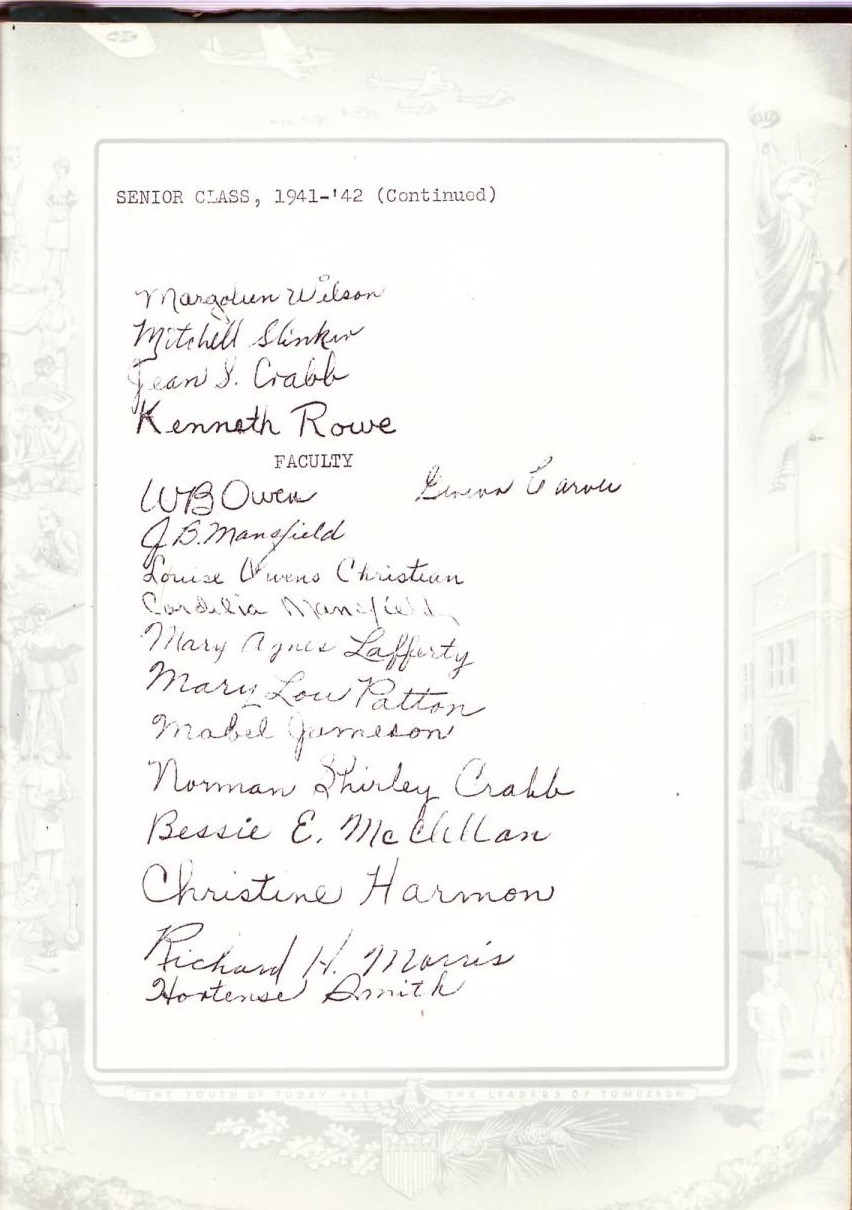 SENIOR CLASS, 1941-'42 (Continued)
Wilson
Mitchell
Jean S. Crabb
Kenneth Rowe
FACULTY
WB Owen
J.B. Mansfield
Louise Owens Christian
Cordelia Mansfield
Mary Agnes Lafferty
Mary Lou Patton
Mabel Jameson
Norman Shirley Crabb
Bessie E. McClellan
Christine Harmon
Richard H. Morris
Hortense Smith
THE YOUTH OF TODAY ARE THE LEADERS OF TOMORROW